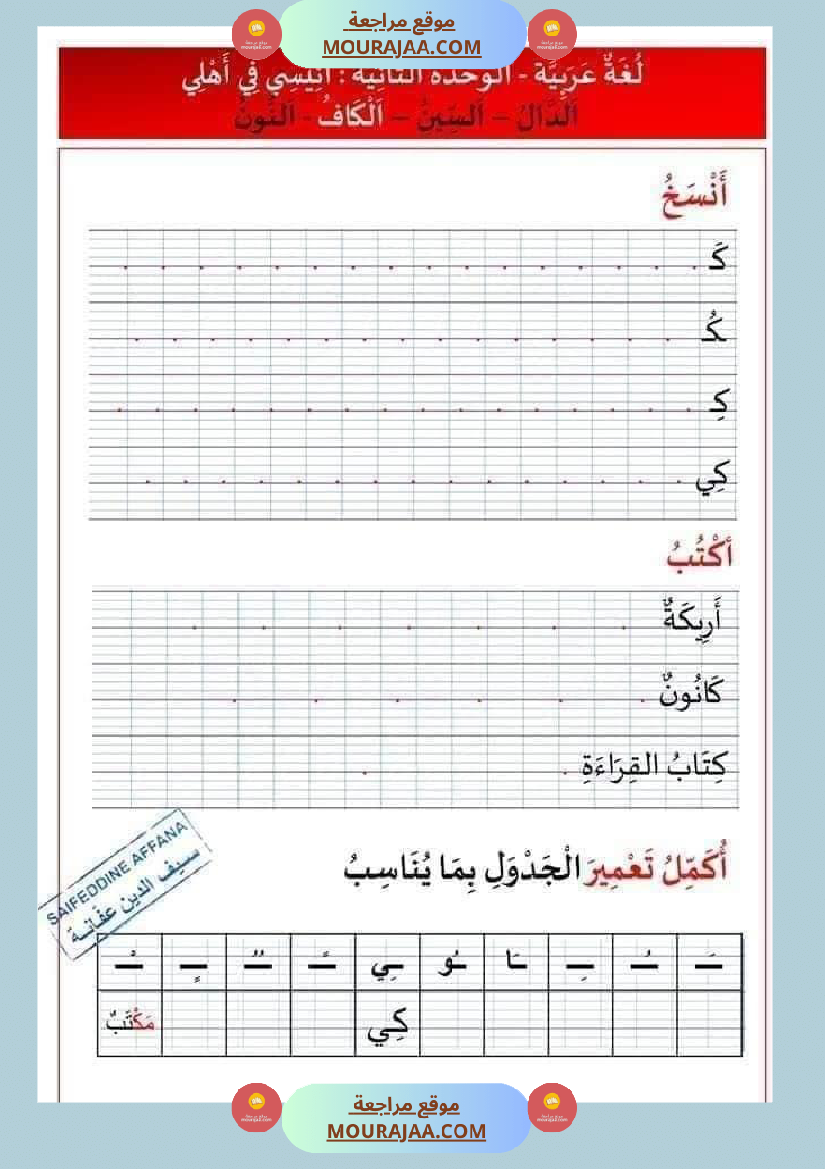 موقع مراجعة
MOURAJAA.COM
لُغَةٌ عَرَبِيَّة - الوحدة الثانية : أَنِيسِي فِي أَهْلِي
اَلدَّالُ – اَلسِّينُ – اَلْكَافُ - اَلنُّونُ
أَنْسَخُ
كَ
كُ
كِ
كِي
أكْتُبُ
أَرِيكَةٌ
كَانُونٌ
كِتَابُ القِرَاءَةِ
SAIFEDDINE AFFANA
سيف الدين عفانة
أُكَمِّلُ تَعْمِيرَ الْجَدْوَلِ بِمَا يُنَاسِبُ
ـَ ـُ ـِ ـَا ـُو ـِي ـً ـٌ ـٍ ـْ
كِي مَكْتَبٌ
موقع مراجعة
MOURAJAA.COM